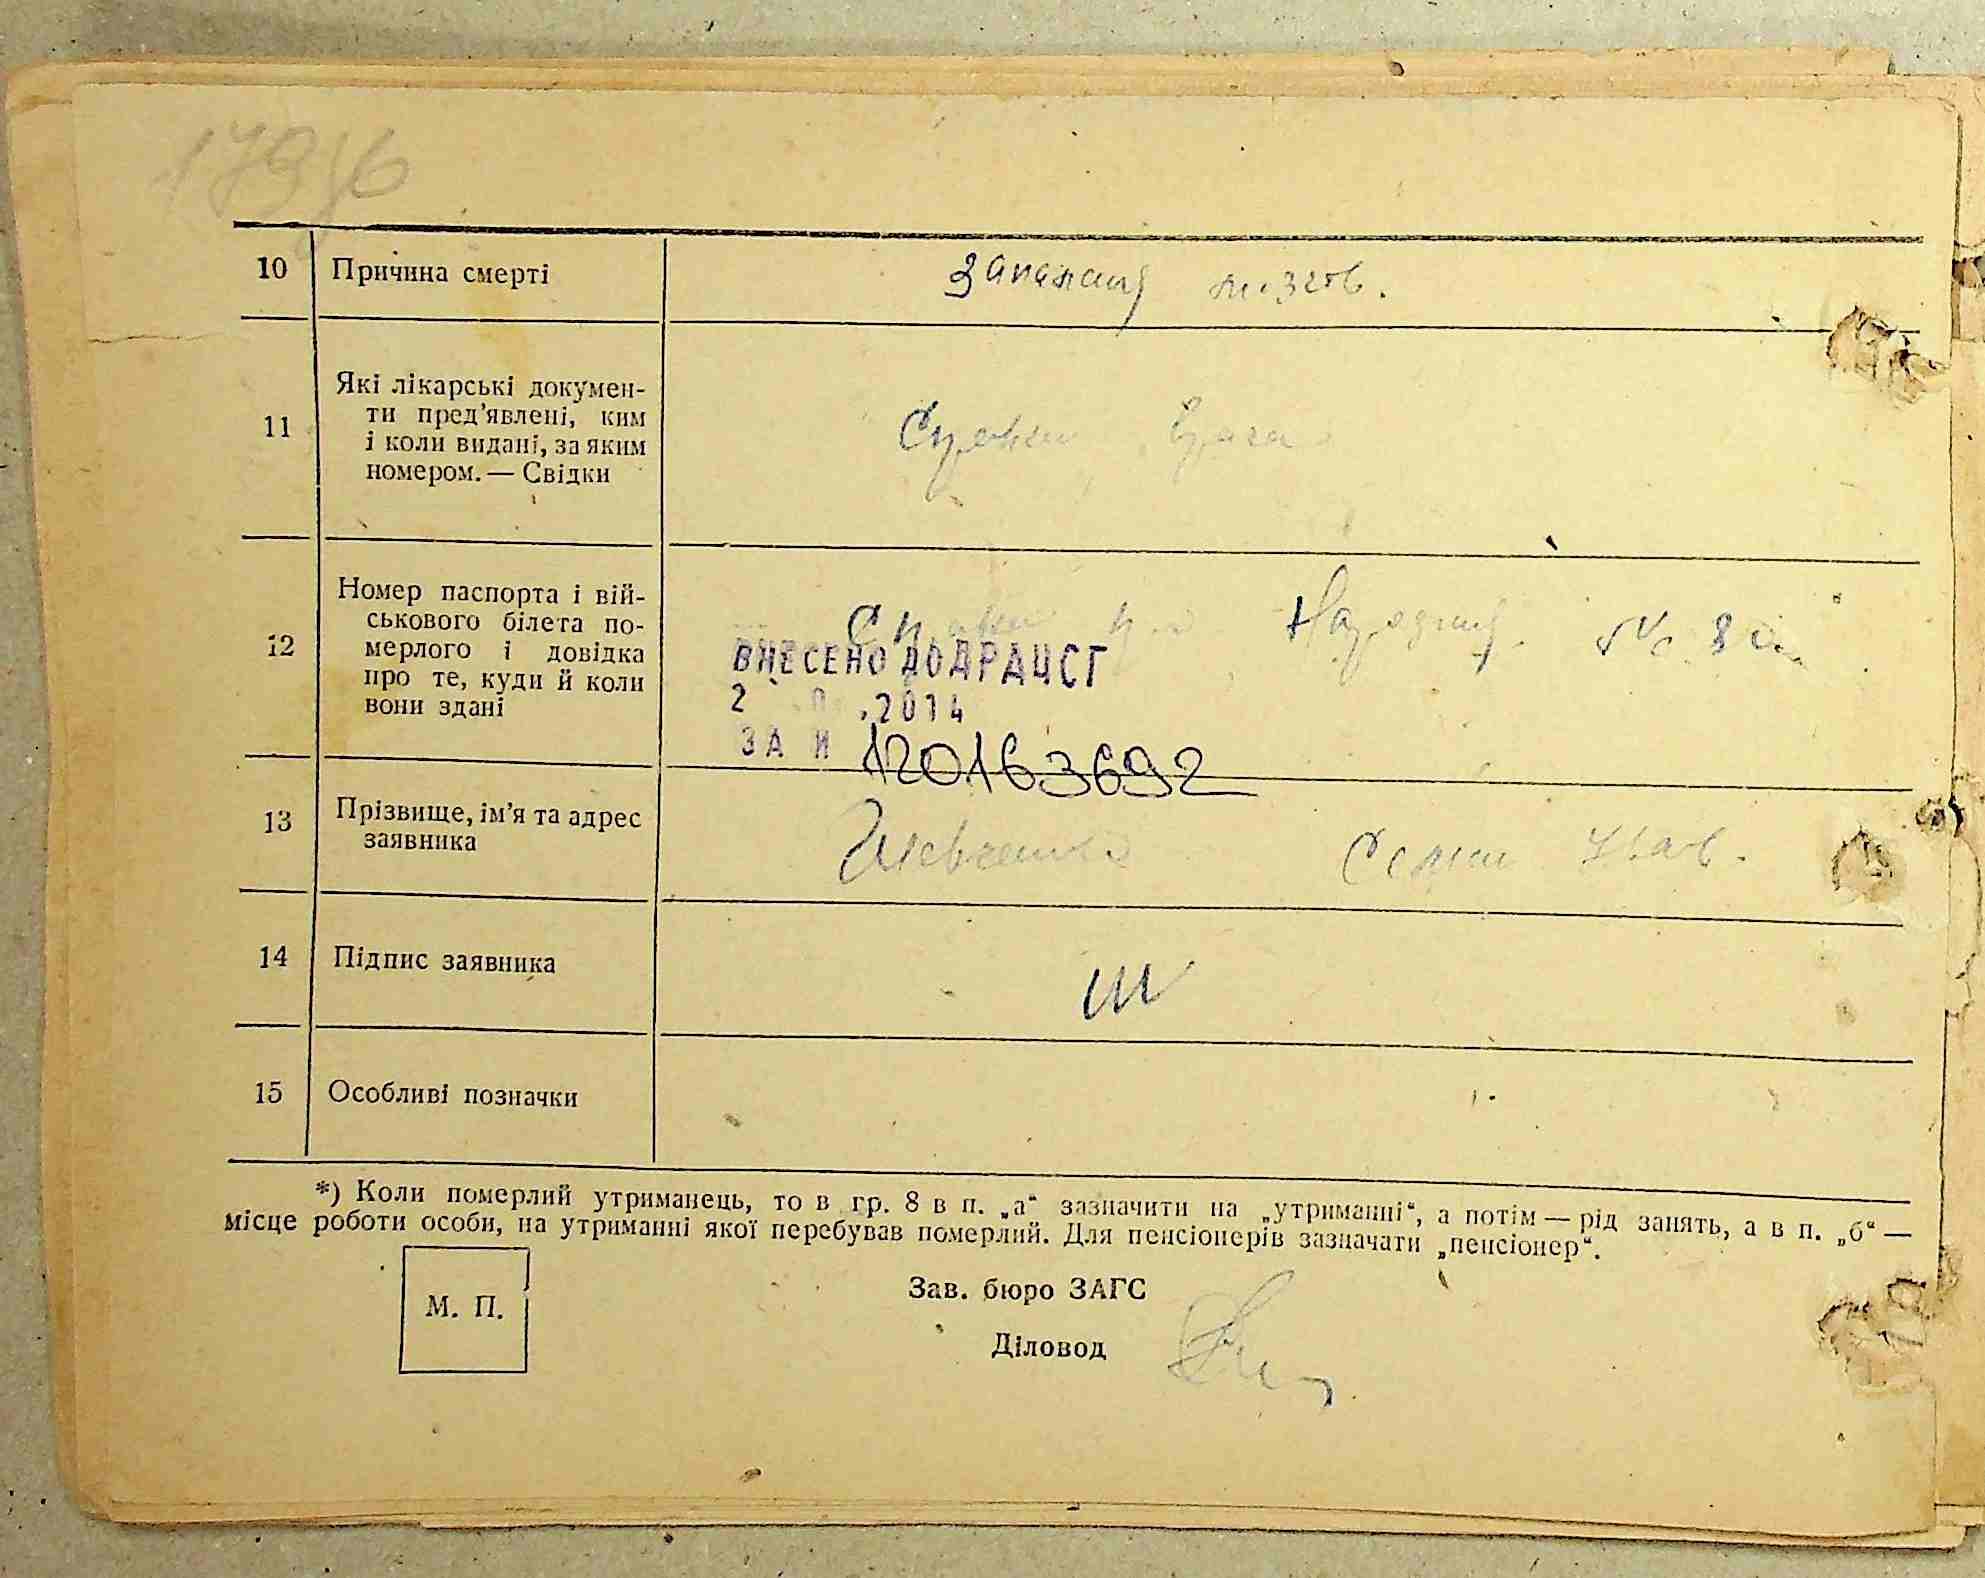 10 Причина смерті Запалання мозгов.
11 Які лікарські докумен-
ти пред'явлені, ким
і коли видані, за яким
номером. — Свідки
12 Номер паспорта і вій-
ськового білета по-
мерлого і довідка
про те, куди й коли
вони здані
ВНЕСЕНО ДО ДРАЦСГ
2 2014
ЗА И 120163692
13 Прізвище, ім'я та адрес
заявника
Шевченко
14 Підпис заявника Ш
15 Особливі позначки
*) Коли померлий утриманець, то в гр. 8 в п. „а“ зазначити на „утриманні“, а потім — рід занять, а в п. „б“ —
місце роботи особи, на утриманні якої перебував померлий. Для пенсіонерів зазначати „пенсіонер“.
М. П.
Зав. бюро ЗАГС
Діловод